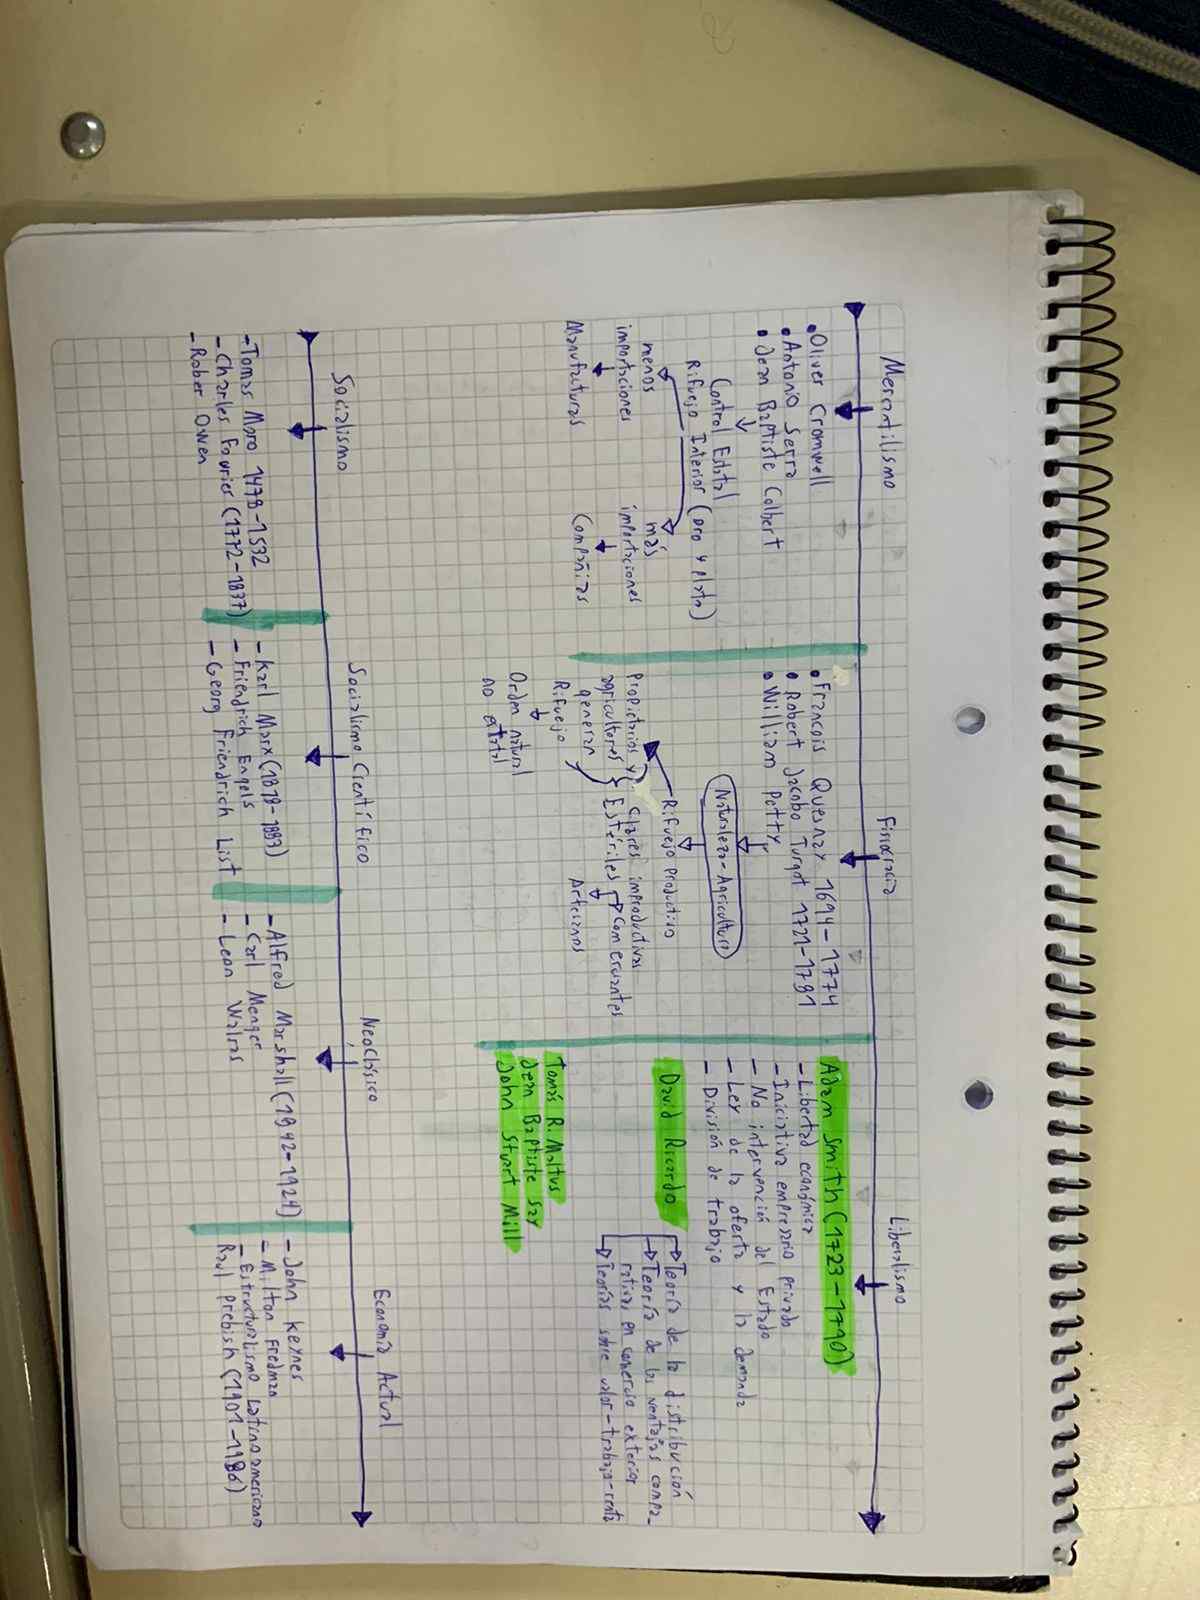 Mercantilismo
• Oliver Cromwell
• Antonio Serra
• Jean Baptiste Colbert
Control Estatal
Rifuejo Interior (oro y plata)
menos
importaciones
Manufacturas
más
importaciones
Compañias
Fisiocracia
• Francois Quesnay 1694-1774
• Robert Jacobo Turgot 1721-1781
• William Petty
Naturaleza-Agricultura
Rifuejo Productivo
Propietarios y
agricultores
generan
Rifuejo
Clases improductivas
Estériles
Comerciantes
Artesanos
Orden natural
no estatal
Liberalismo
Adam Smith (1723-1790)
- Libertad económica
- Iniciativa empresario privado
- No intervención del Estado
- Ley de la oferta y la demanda
- División de trabajo
David Ricardo
Teoría de la distribución
Teoría de las ventajas compa-
rativas en comercio exterior
Teorías sobre valor-trabajo-renta
Tomás R. Maltus
Jean Baptiste Say
John Stuart Mill
Socialismo
- Tomas Moro 1478-1532
- Charles Fourier (1772-1837)
- Rober Owen
Socialismo Científico
- Karl Marx (1818-1883)
- Friendrich Engels
- Georg Friendrich List
Neoclásico
- Alfred Marshall (1942-1924)
- Carl Menger
- Leon Walras
Economía Actual
- John Keynes
- Milton Fredman
- Estructuralismo Latinoamericano
Raul Prebish (1901-1986)